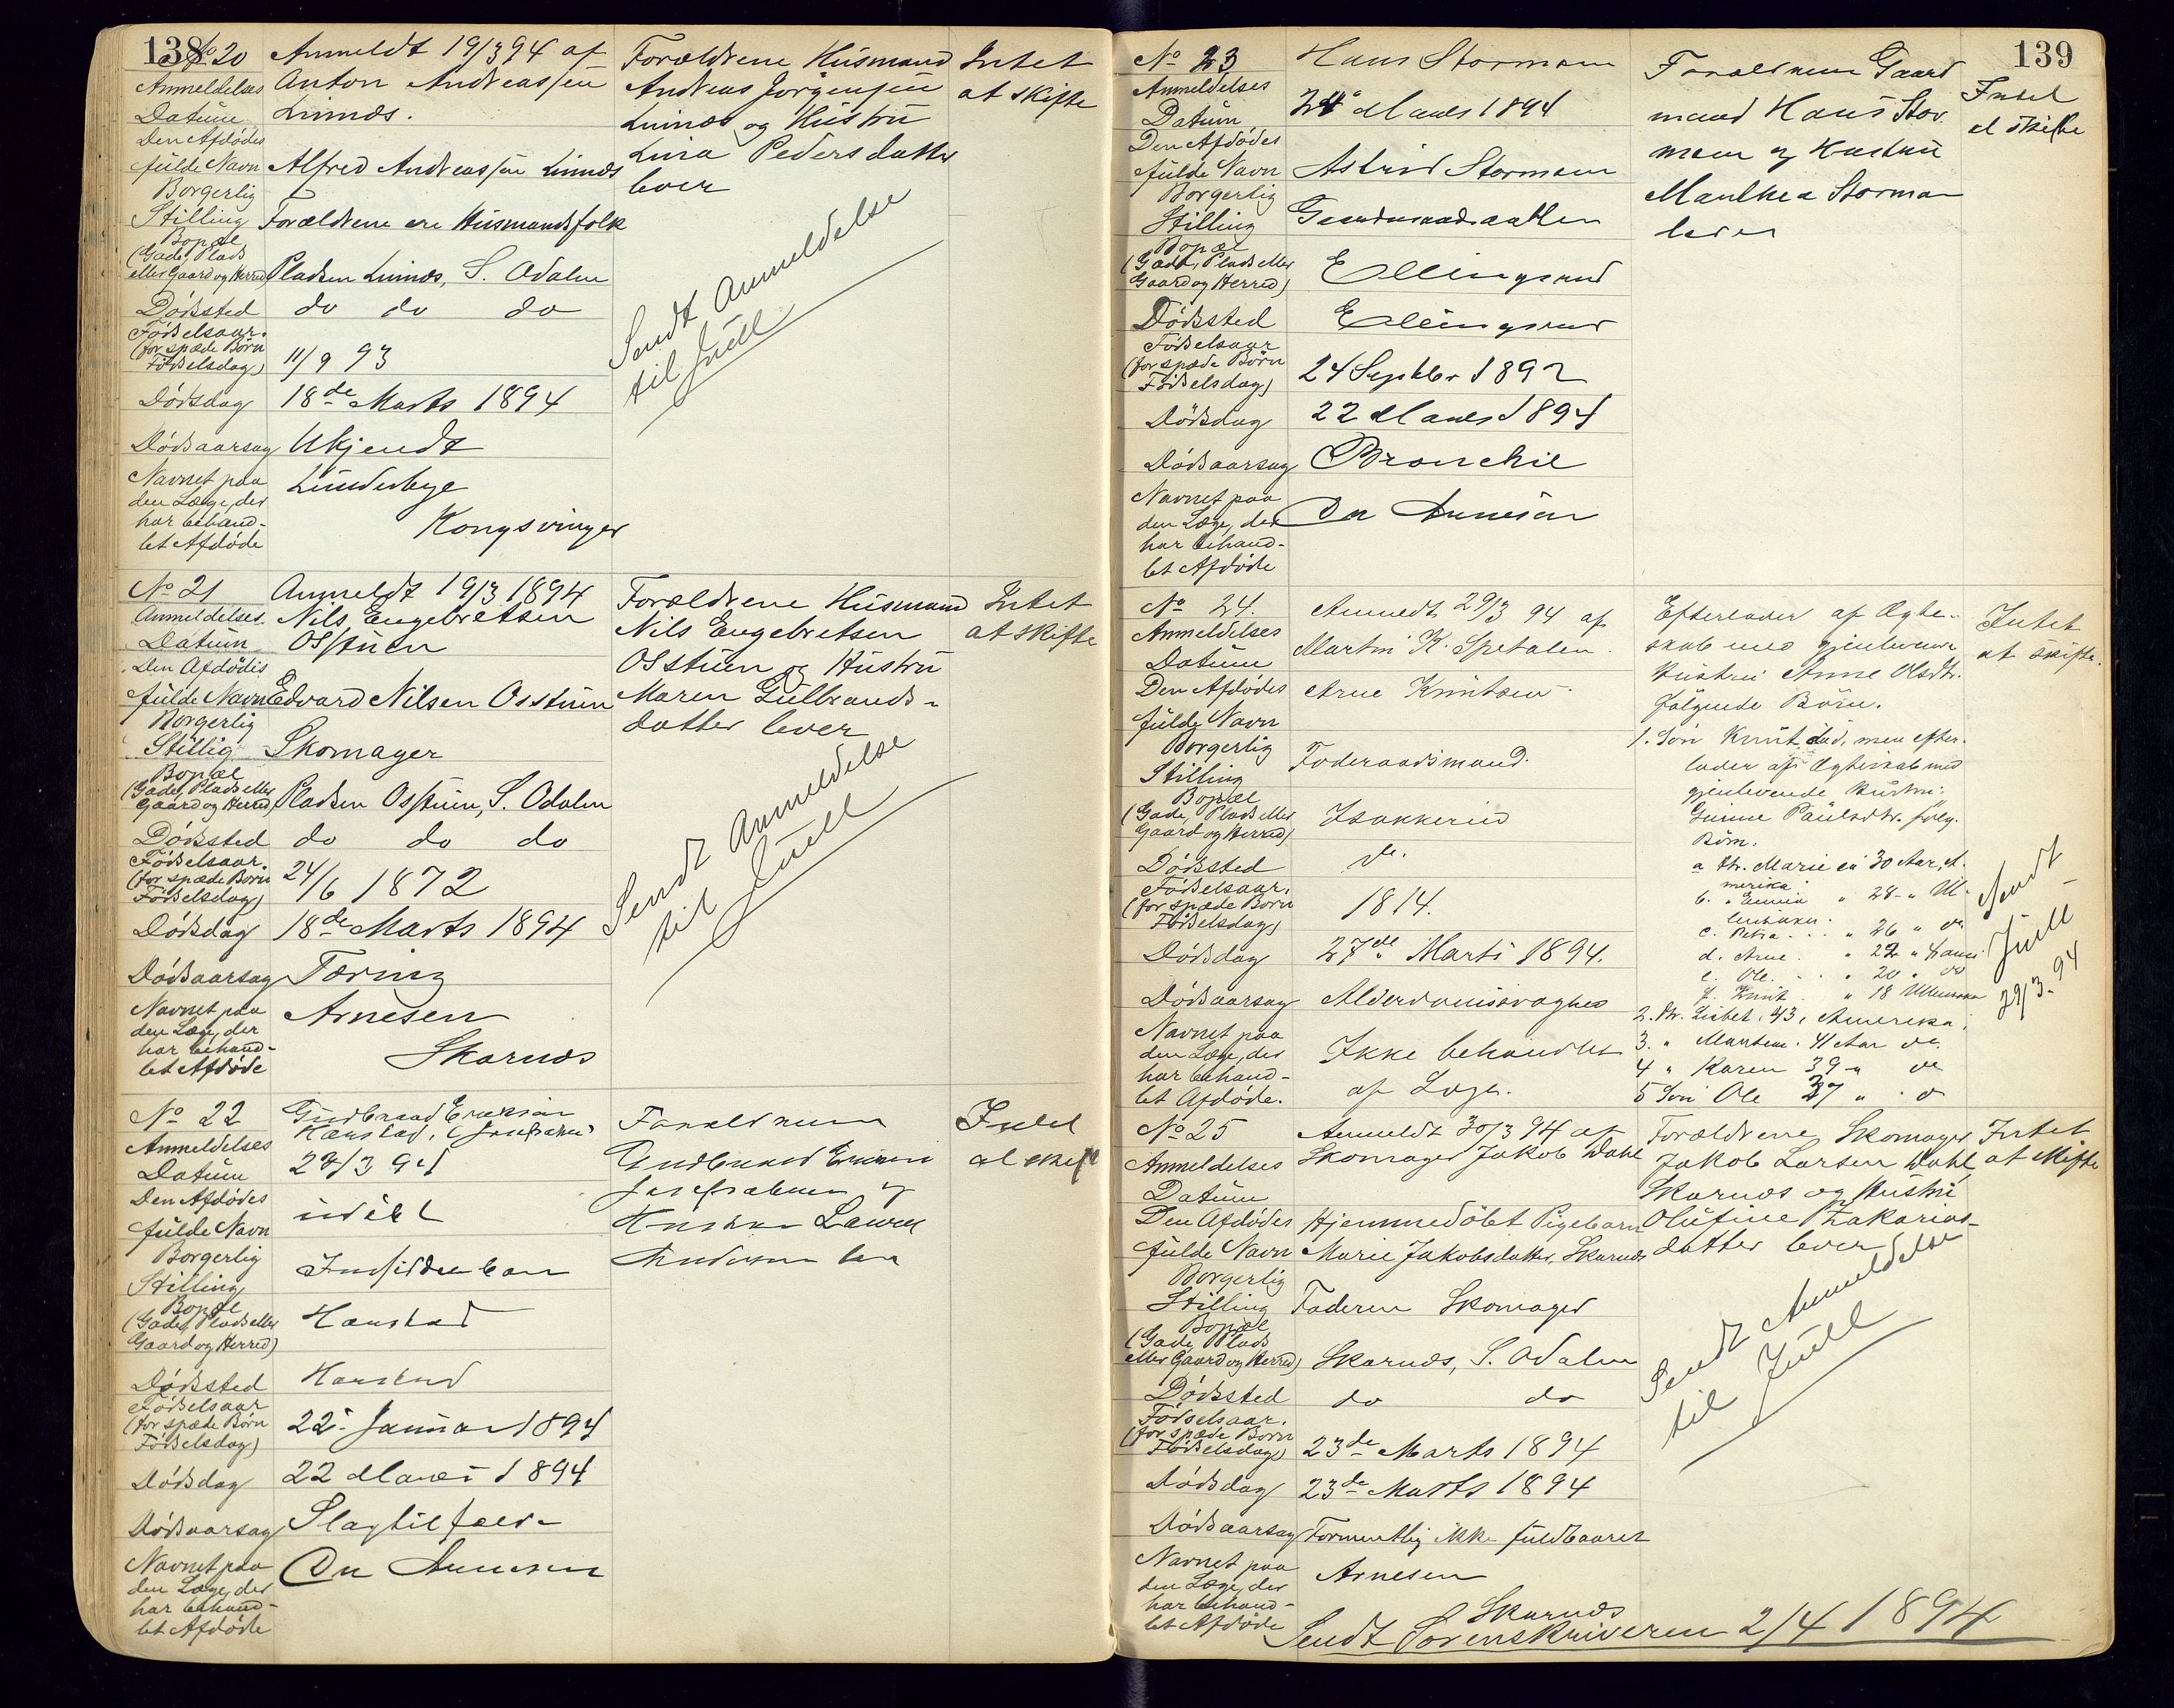 138
No 20
Anmeldelses
Datum
Den Afdødes
fulde Navn
Borgerlig
Stilling
Bopæl
(Gade, Plads
eller Gaard og Herred)
Dødssted
Fødselsaar.
(for spæde Børn
Fødselsdag)
Dødsdag
Dødsaarsag
Navnet paa
den Læge, der
har behand-
let Afdøde
Anmeldt 19/3 94 af
Anton Andreassen
Linnæs.
Alfred Andreassen Linnæs
Forældrene ere Husmandsfolk
Pladsen Linnæs, S. Odalen
do do do
11/9 93
18de Marts 1894
Ukjendt
Kongsvinger
Forældrene Husmand
Andreas Jørgensen
Linnæs og Hustru
Lina Pedersdatter
lever
Sendt Anmeldelse
til Juell
Intet
at skifte
No 21
Anmeldelses.
Datum
Den Afdødes
fulde Navn
Borgerlig
Stillig
Bopæl
(Gade, Plads eller
Gaard og Herred)
Dødssted
Fødselsaar.
(for spæde Børn
Fødselsdag)
Dødsdag
Dødsaarsag
Navnet paa
den Læge, der
har behand-
let Afdøde
Anmeldt 19/3 1894
Nils Engebretsen
Osstuen
Edvard Nilsen Osstuen
Skomager
Pladsen Osstuen, S. Odalen
do do do
24/6 1872
18de Marts 1894
Tæring
Arnesen
Skarnæs
Forældrene Husmand
Nils Engebretsen
Osstuen og Hustru
Maren Gulbrands-
datter lever
Sendt Anmeldelse
til Juell
Intet
at skifte
No 22
Anmeldelses
Datum
Den Afdødes
fulde Navn
Borgerlig
Stilling
Bopæl
(Gade, Plads eller
Gaard og Herred)
Dødssted
Fødselsaar
(for spæde Børn
Fødselsdag)
Dødsdag
Dødsaarsag
Navnet paa
den Læge, der
har behand-
let Afdøde
Gudbrand Eriksen
/3 94
udøbt
Harstad
Harstad
22 Januar 1894
22 Marts 1894
Slagtilfælde
Dr Arnesen
Forældrene
Gudbrand Eriksen
Intet
at skifte
139
No 23
Anmeldelses
Datum
Den Afdødes
fulde Navn
Borgerlig
Stilling
Bopæl
(Gade, Plads eller
Gaard og Herred)
Dødssted
Fødselsaar
(for spæde Børn
Fødselsdag)
Dødsdag
Dødsaarsag
Navnet paa
den Læge, der
har behand-
let Afdøde
Hans Storman
Marts 1894
Astrid Storman
Gaardmandsdatter
Ellingsrud
Ellingsrud
24 Septbr 1892
22 Marts 1894
Bronchit
Dr Arnesen
Forældrene Gaard
mand Hans Stor-
man og Hustru
Manthea Storman
lever
Intet
at skifte
No 24.
Anmeldelses
Datum
Den Afdødes
fulde Navn
Borgerlig
Stilling
Bopæl
(Gade, Plads eller
Gaard og Herred)
Dødssted
Fødselsaar.
(for spæde Børn
Fødselsdag)
Dødsdag
Dødsaarsag
Navnet paa
den Læge, der
har behand-
let Afdøde.
Anmeldt 29/3 94 af
Martin K. Spetalen.
Arne Knutsen.
Føderaadsmand.
Isakkerud
do.
1814.
27de Marts 1894.
Alderdomssvaghed
Ikke behandlet
af Læge.
Efterlader af Ægte-
skab med gjenlevende
Hustru Anne Olsdtr.
følgende Børn.
1. Søn Knut, død, men efter-
lader af Ægteskab med
gjenlevende Hustru:
Paulsdtr. følg.
Børn.
a Dtr. Marie 30 Aar, A-
merika
b. " 28 "
c. Petra 26 " do
d. Arne " 22 "
e. Ole " 20 " do
f. Knut " 18
2. Dtr. Lisbet, 43, Amerika,
3. " 41 Aar do.
4 " Karen 39 " do
5 Søn Ole 37 " do
Intet
at skifte.
Sendt
Juell
29/3. 94
No 25
Anmeldelses
Datum
Den Afdødes
fulde Navn
Borgerlig
Stilling
Bopæl
(Gade, Plads
eller Gaard og Herred)
Dødssted
Fødselsaar.
(for spæde Børn
Fødselsdag)
Dødsdag
Dødsaarsag
Navnet paa
den Læge, der
har behand-
let Afdøde
Anmeldt 30/3 94 af
Skomager Jakob Dahl
Hjemmedøbt Pigebarn
Marie Jakobsdatter, Skarnæs
Faderen Skomager
Skarnæs, S. Odalen
do do
23de Marts 1894
23de Marts 1894
Formentlig ikke fuldbaaret
Arnesen
Skarnæs
Forældrene Skomager
Jakob Larsen Dahl,
Skarnæs og Hustru
Olufine Zakarias-
datter lever
Sendt Anmeldelse
til Juell
Intet
at skifte
Sendt Sorenskriveren 2/4 1894